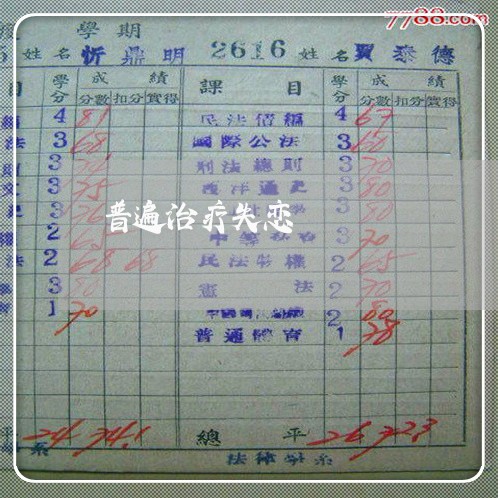 7788.com
學期
姓名 忻鼎明 2616 姓名 賈泰德
目 學分 成績 課目 學分 成績
分數 扣分 實得 分數 扣分 實得
4 81 民法債編 4 67
法 3 68 國際公法 3 60
則 3 刑法總則 3 70
3 75 西洋通史 3 80
3 76 3 80
普遍治疗失恋
2 65 3 70
法 2 68 68 民法物權 2 65
3 80 憲法 2 70
1 70 2 80
普通體育 1 78
平 24 74.1 總平 26 72.3
系 法律學系